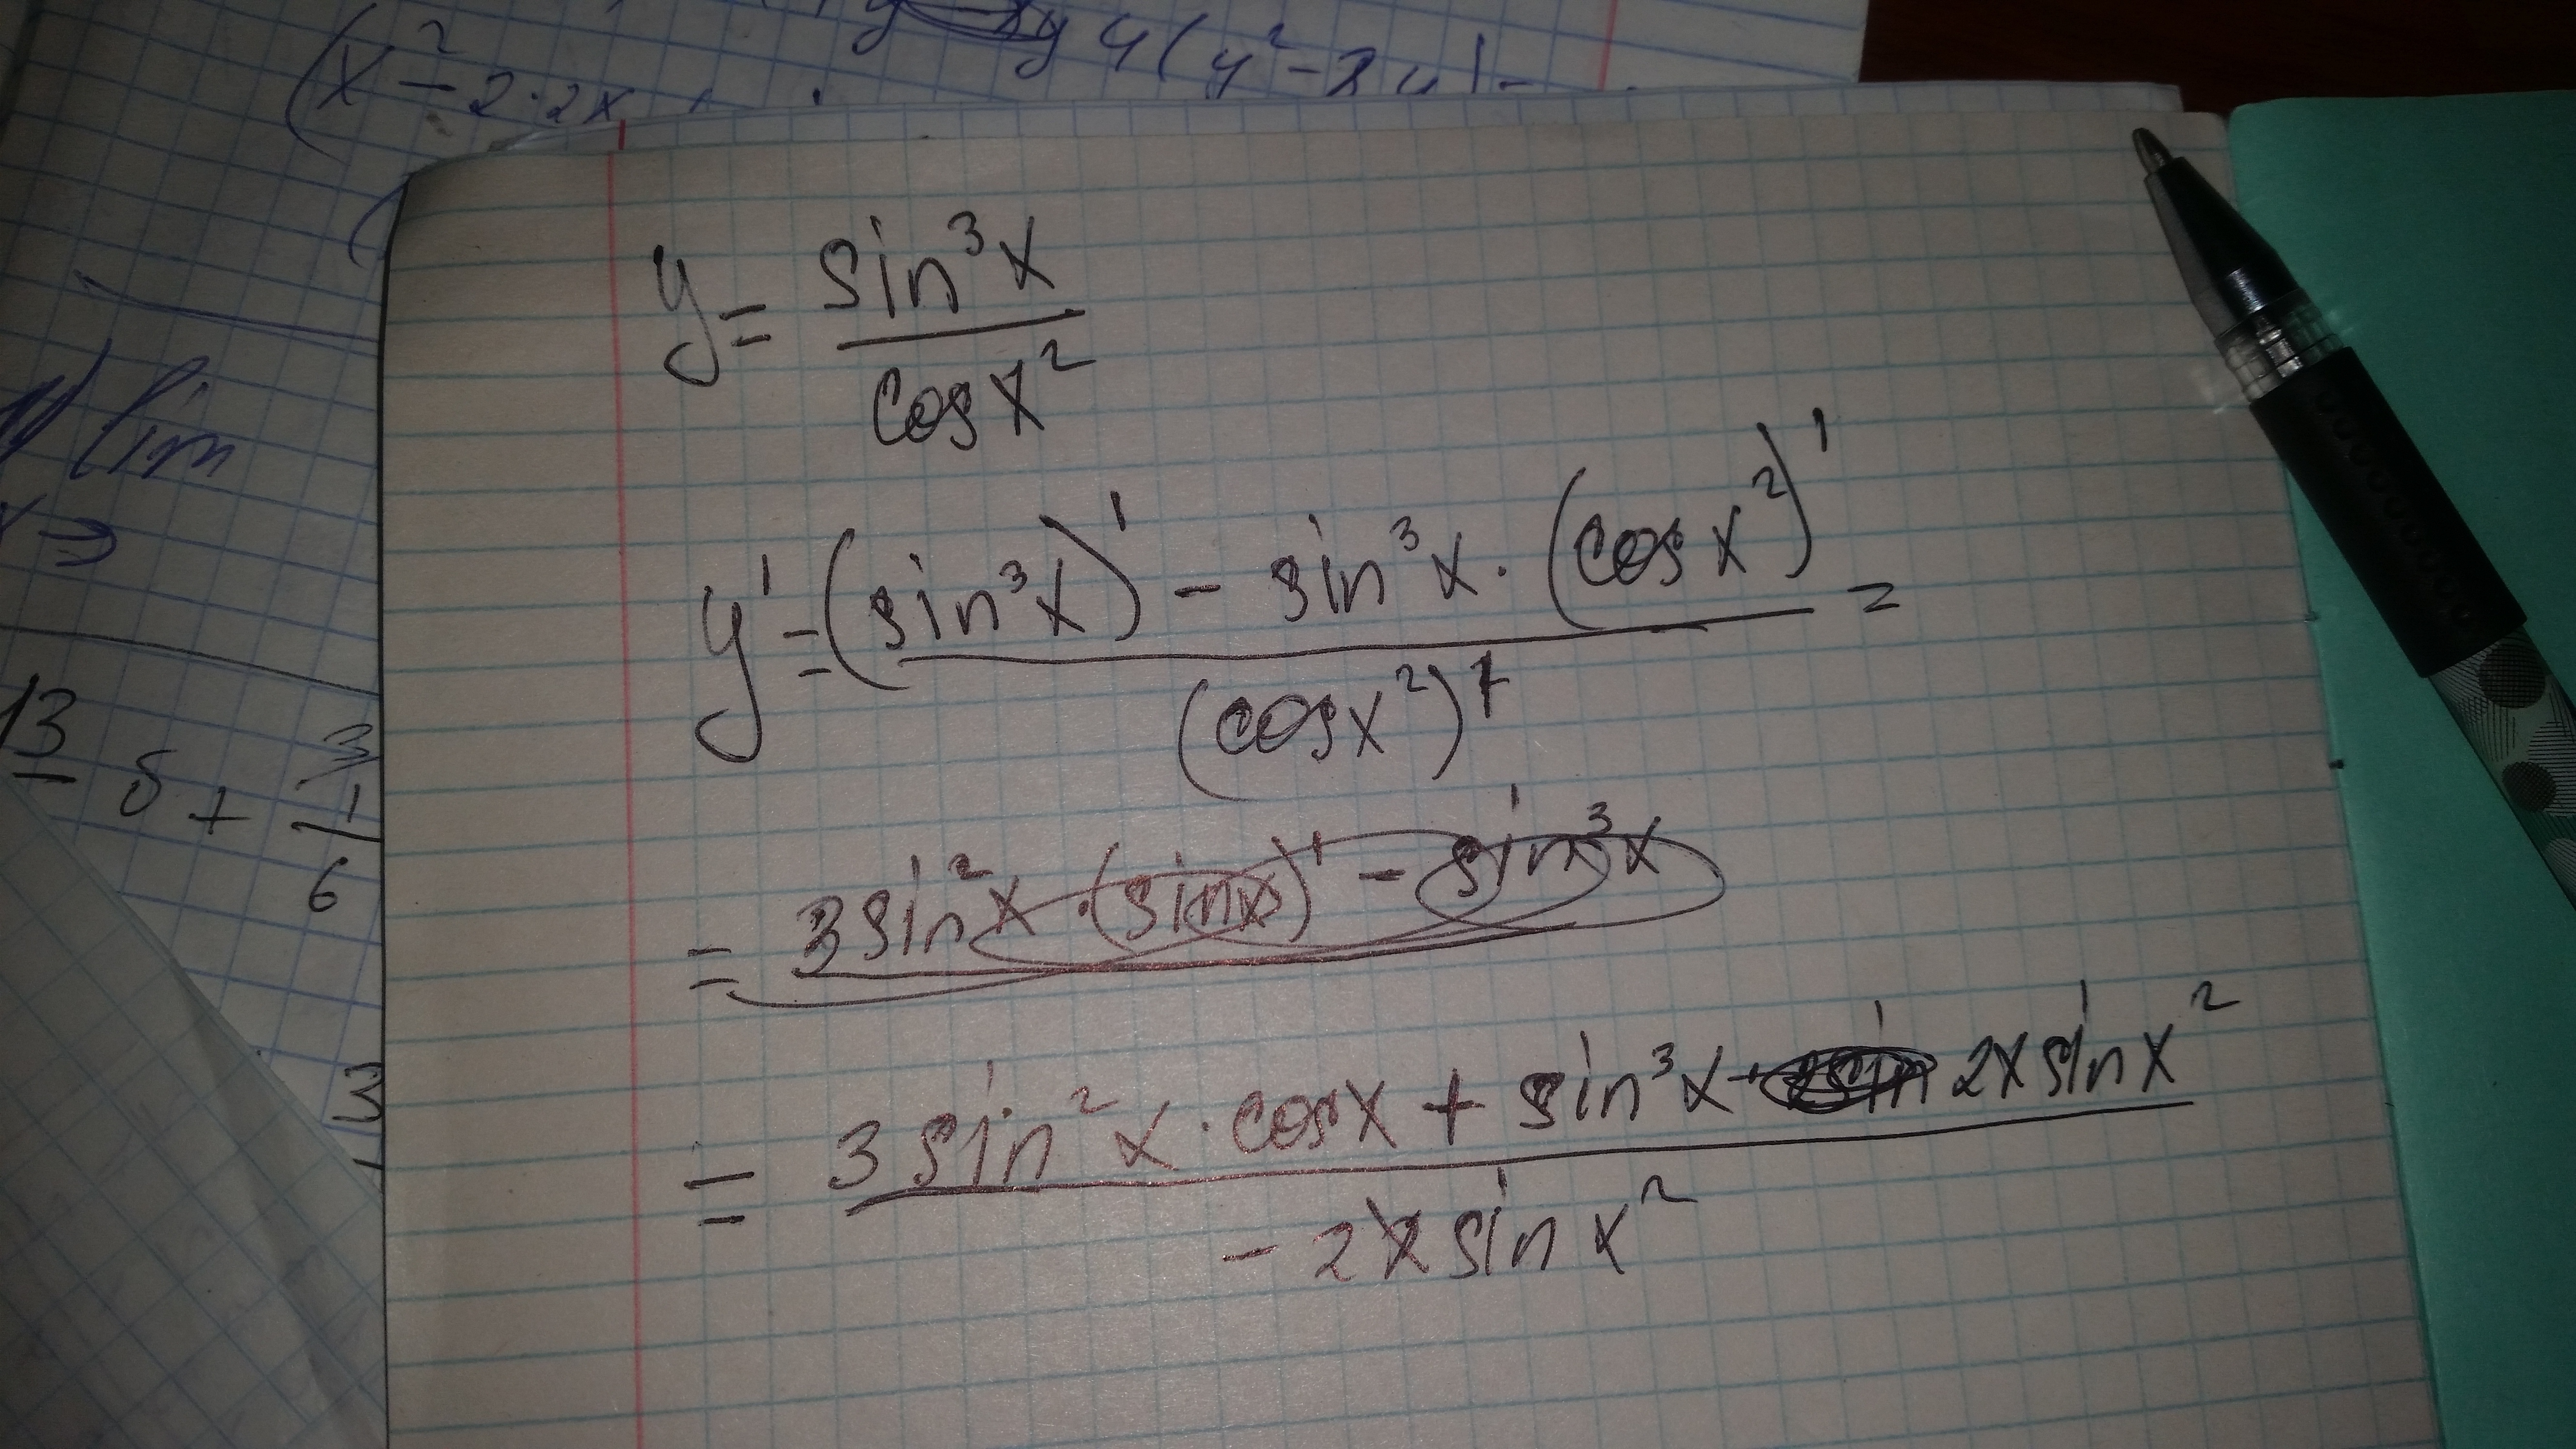 (x² - 2·2x
4(y² - 2y) -
lim
x →
13
δ + 3
1
6
y = sin³x / cosx²
y' = (sin³x)' - sin³x · (cosx²)' / (cosx²)' =
= 3sin²x · (sinx)' - sin³x
= 3 sin²x · cosx + sin³x · 2x sinx² / - 2x sin x²